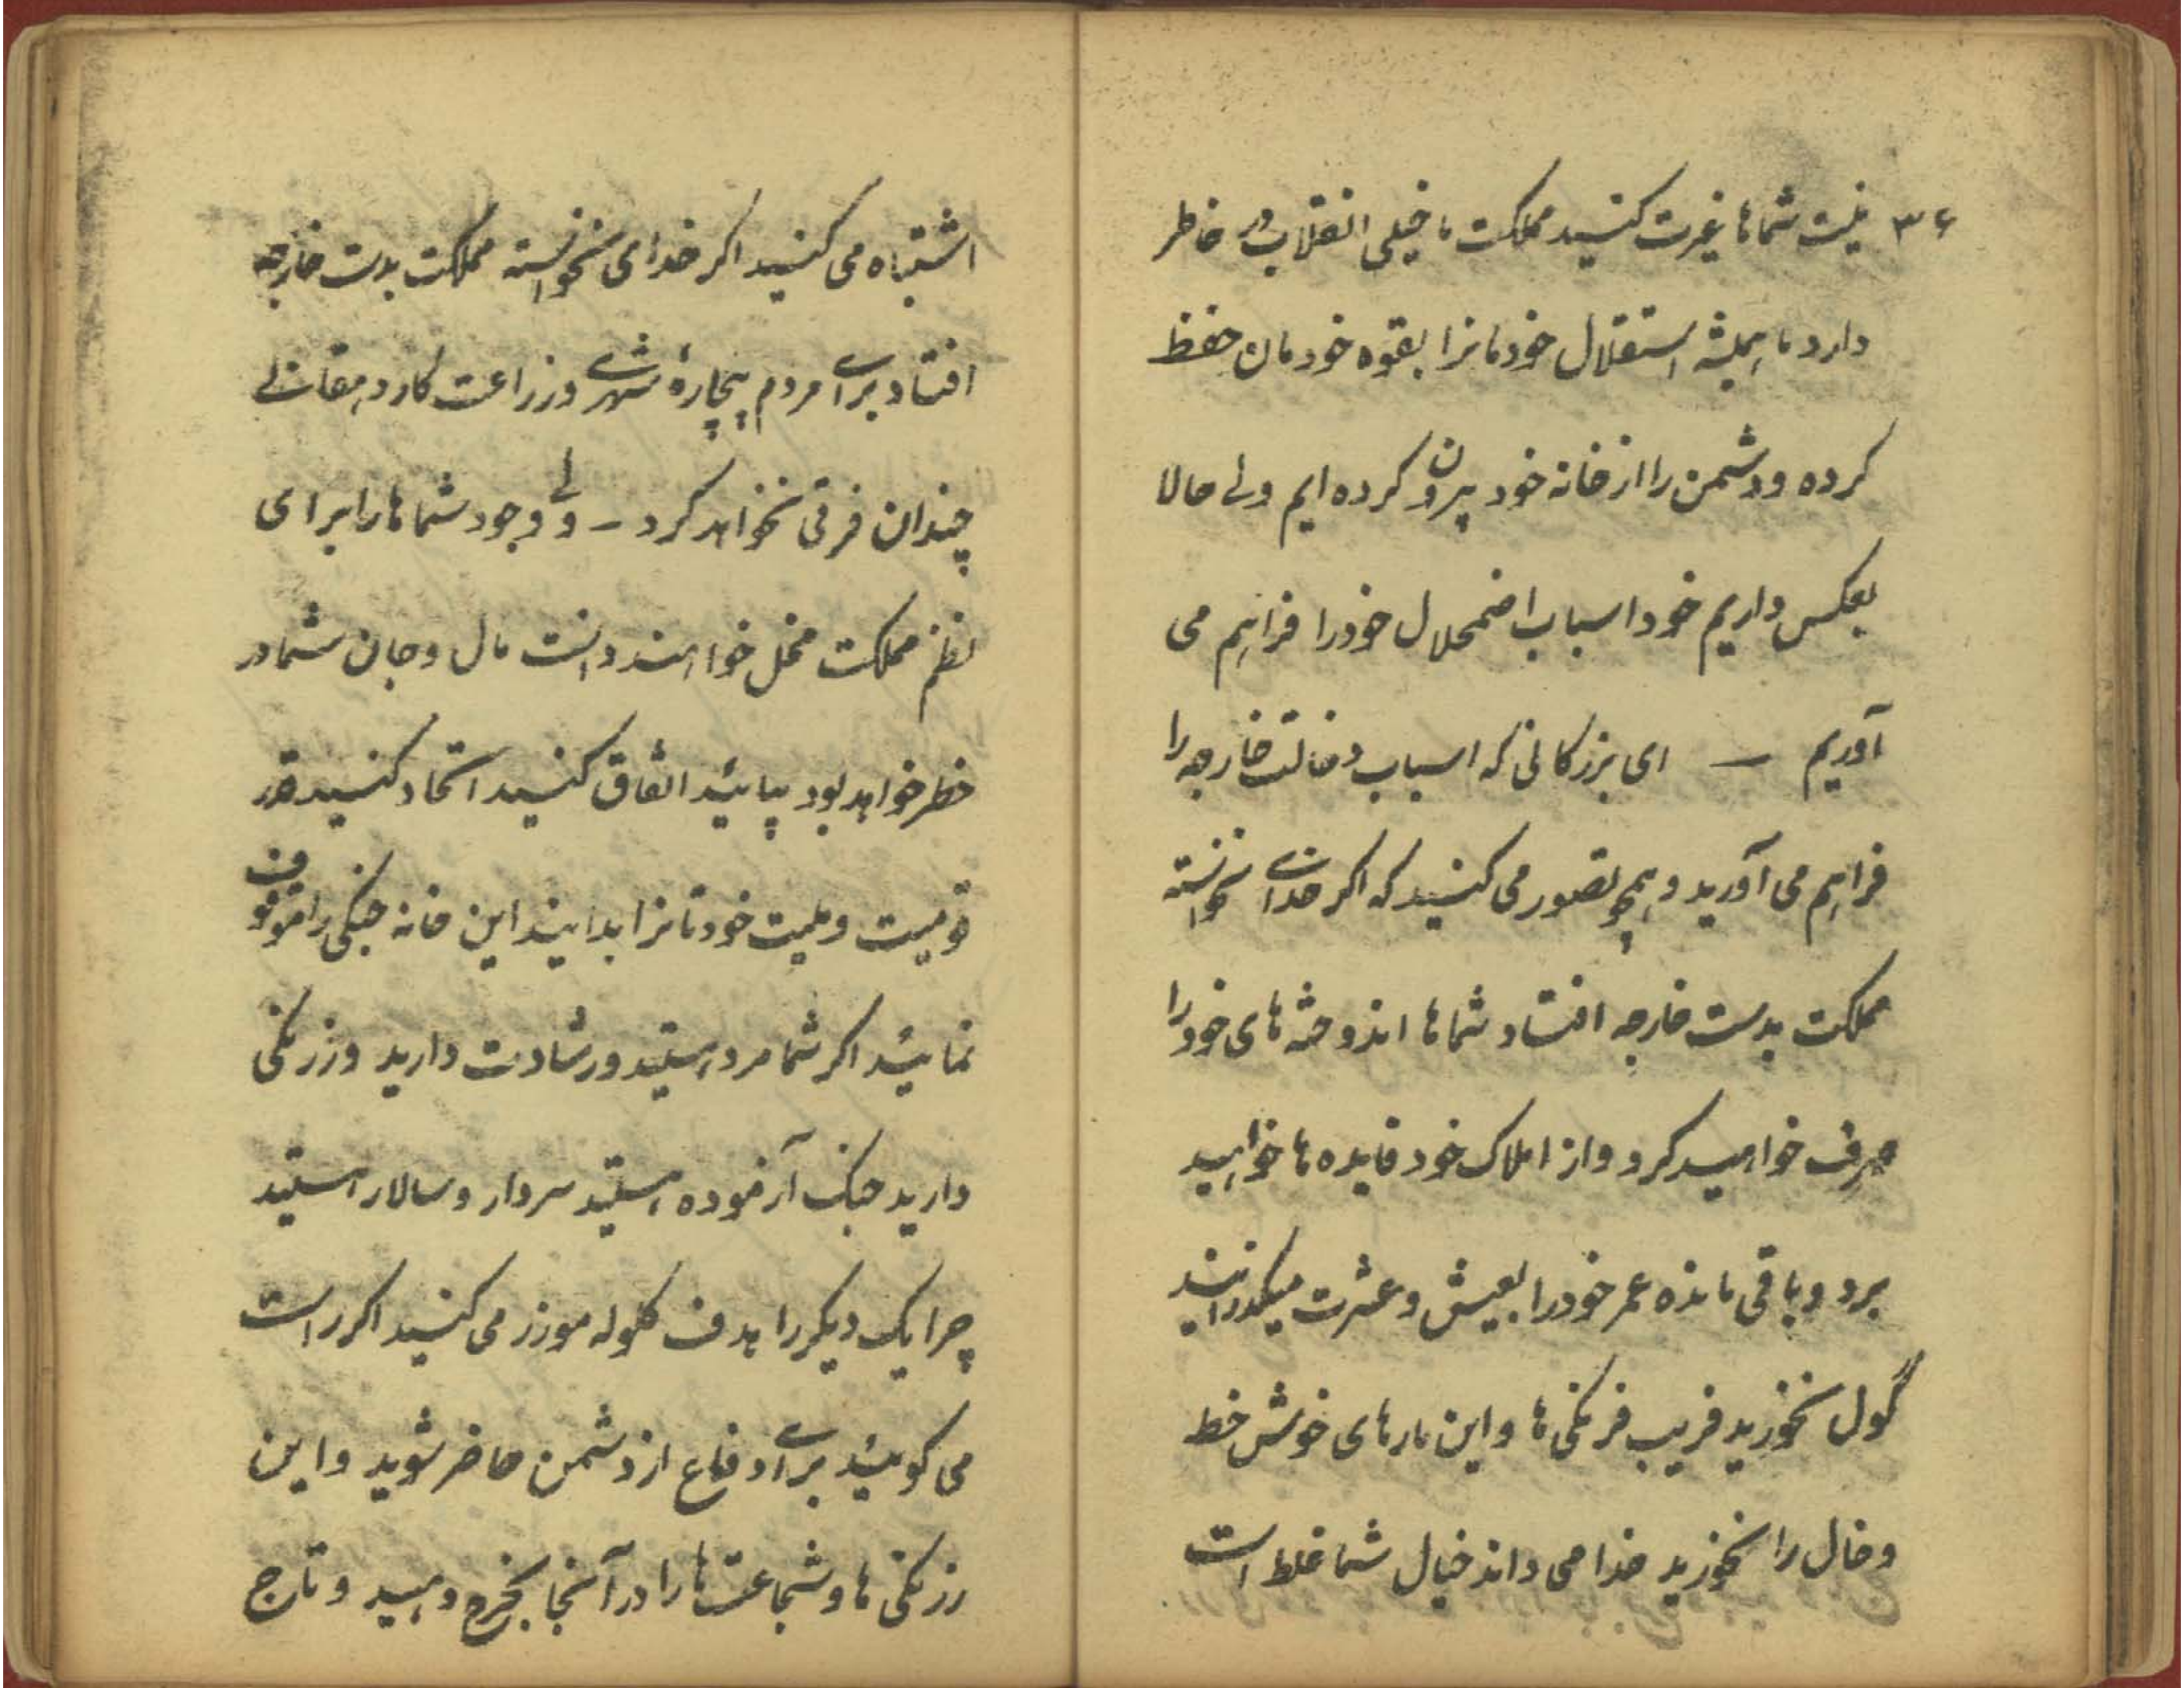 ۳۶ نیست شماها غیرت کنسید مملکت ما خیلی انقلاب در خاطر
دارد ما همیشه استقلال خودمانرا بقوه خودمان حفظ
کرده و دشمن را از خانه خود بیرون کرده ایم ولی حالا
بعکس داریم خود اسباب اضمحلال خود را فراهم می
آوریم — ای بزرکانی که اسباب دخالت خارجه را
فراهم می آورید و همچو تصور می کنید که اکر خدای نخواسته
مملکت بدست خارجه افتاد شماها اندوخته های خود را
صرف خواهید کرد و از املاک خود فایده ها خواهید
برد و باقی مانده عمر خود را بعیش و عشرت میکذرانید
گول نخورید فریب فرنکی ها و این مارهای خوش خط
و خال را نخورید خدا می داند خیال شما غلط است
اشتباه می کنید اکر خدای نخواسته مملکت بدست خارجه
افتاد برای مردم بیچارهٔ شهری و زراعت کار دهقانی
چندان فرقی نخواهد کرد — ولی وجود شماها را برای
نظم مملکت مخل خواهند دانست مال و جان شما در
خطر خواهد بود بیائید اتفاق کنید اتحاد کنید قدر
قومیت و ملیت خودتانرا بدانید این خانه جنکی را موقوف
نمائید اکر شما مرد هستید و رشادت دارید و زرنکی
دارید جنک آزموده هستید سردار و سالار هستید
چرا یک دیکر را هدف کلوله موزر می کنید اکر راست
می کوئید برای دفاع از دشمن حاضر شوید و این
زرنکی ها و شجاعت ها را در آنجا بخرج دهید و تاج